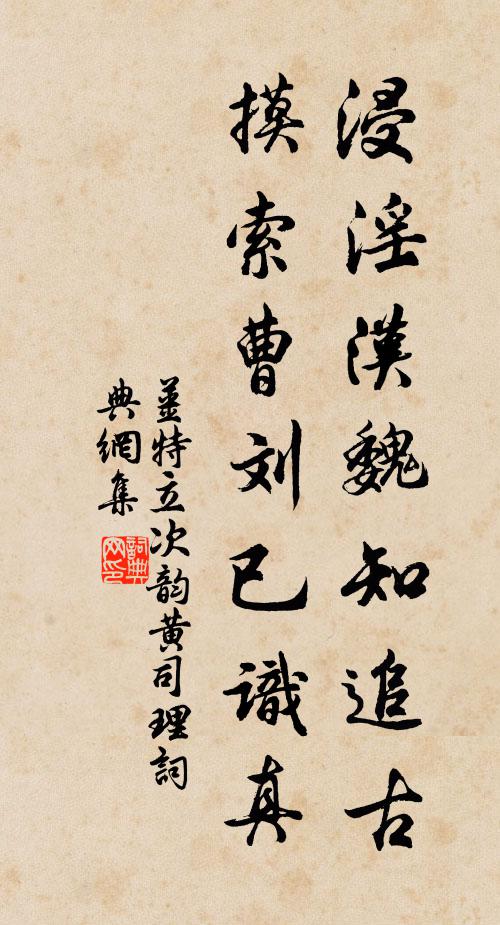 浸淫漢魏知追古
摸索曹刘已識真
姜特立次韵黄司理詞
典網集
詞典網印